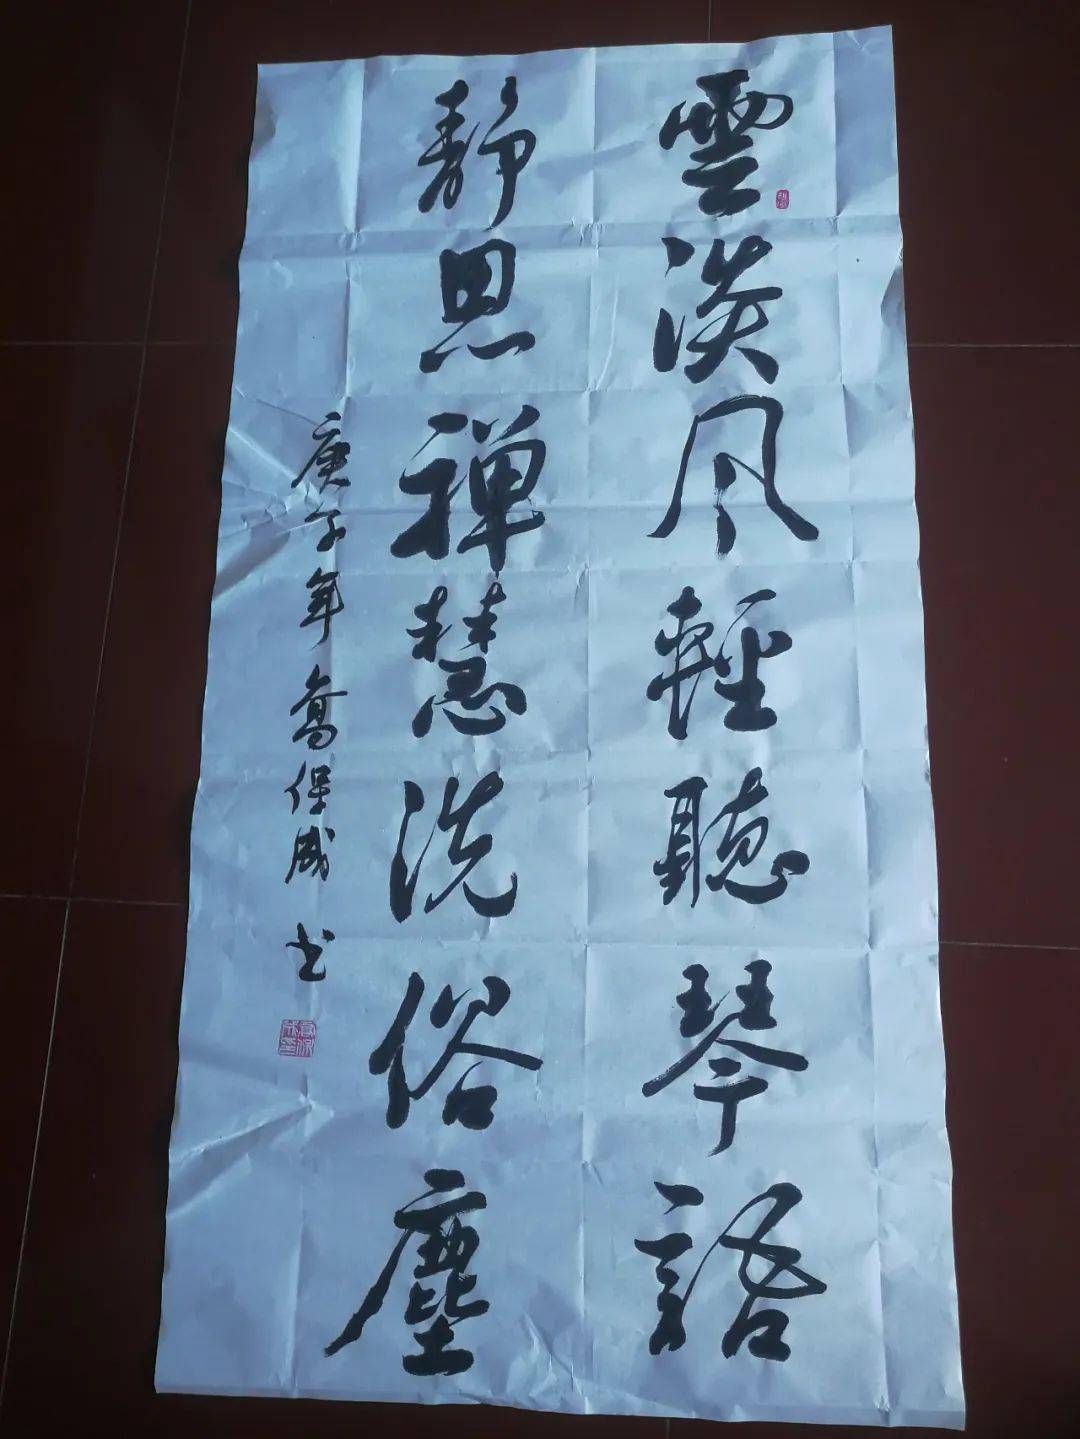 雲淡风輕聽琴語
静思禅慧洗俗塵
庚子年高保成书